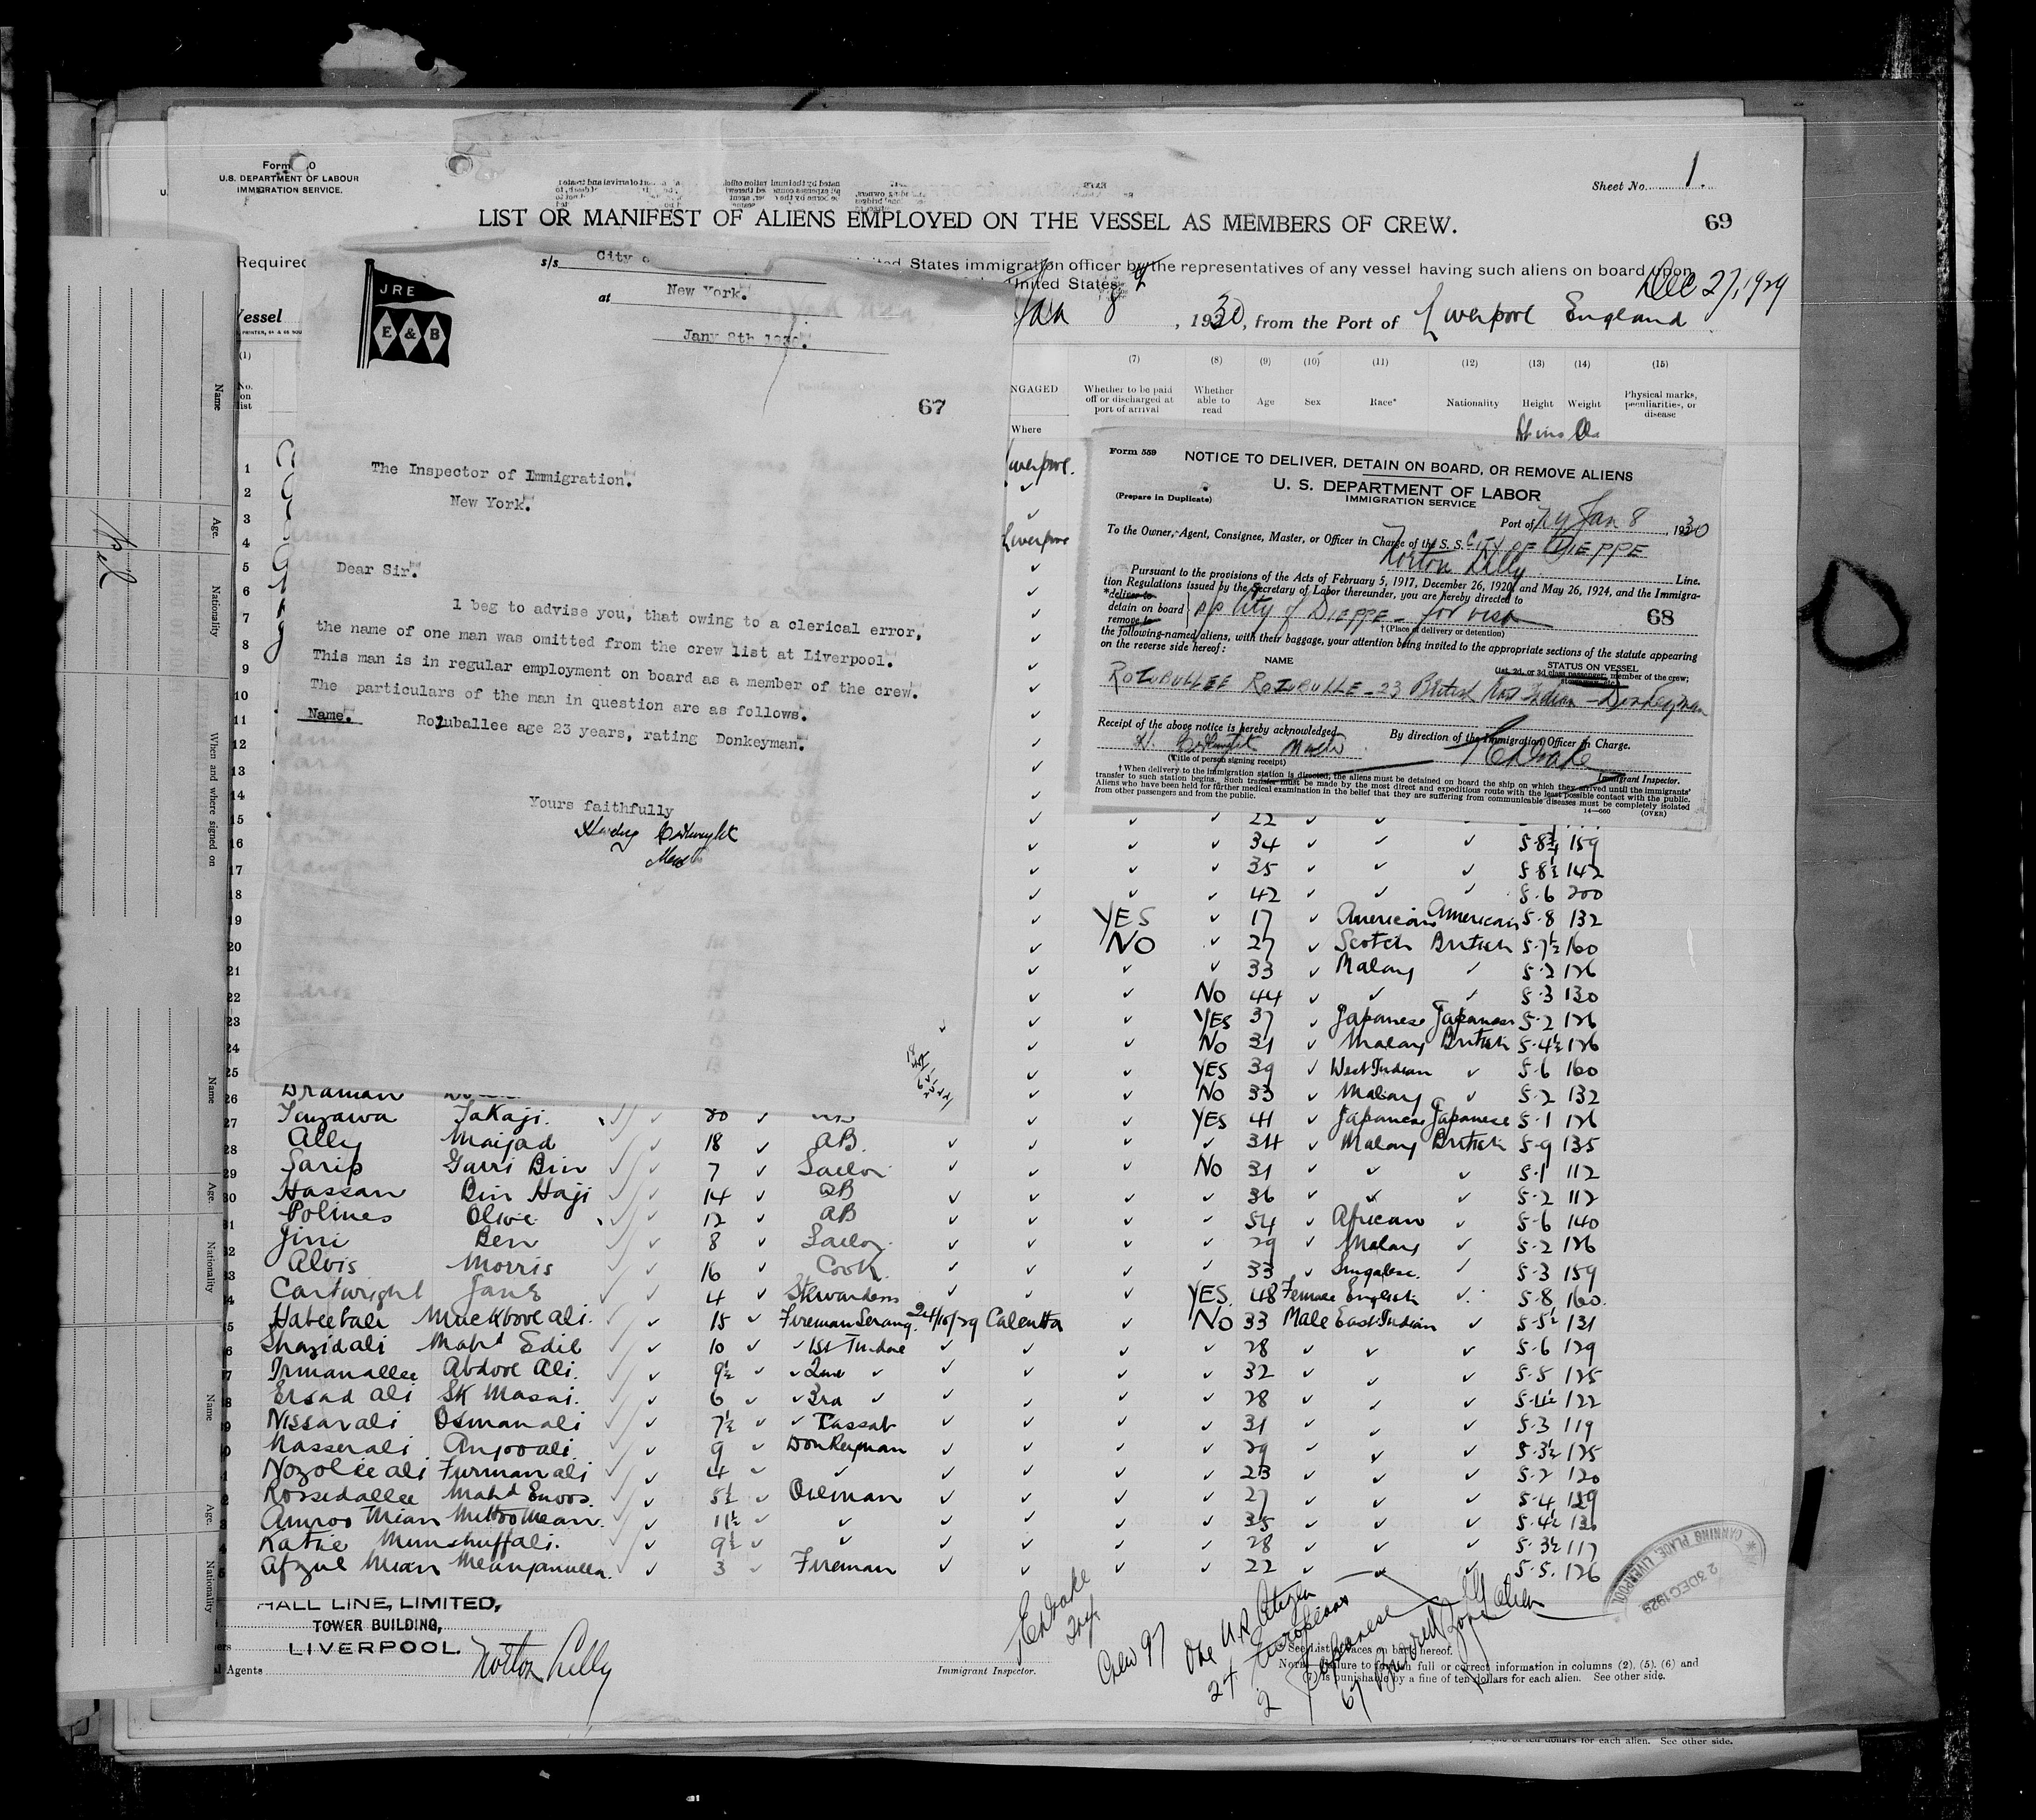 Form
U.S. DEPARTMENT OF LABOUR
IMMIGRATION SERVICE.
Sheet No. 1.
LIST OR MANIFEST OF ALIENS EMPLOYED ON THE VESSEL AS MEMBERS OF CREW.
69
Required
States immigration officer by the representatives of any vessel having such aliens on board upon
United States
Dec 27, 1929
Vessel
Jan 8th, 1930, from the Port of Liverpool England
JRE
E & B
s/s City
at New York.
Jany 8th 1930.
67
The Inspector of Immigration.
New York.
Dear Sir.
I beg to advise you, that owing to a clerical error,
the name of one man was omitted from the crew list at Liverpool.
This man is in regular employment on board as a member of the crew.
The particulars of the man in question are as follows.
Name. Rozuballee age 23 years, rating Donkeyman.
Yours faithfully
(7) (8) (9) (10) (11) (12) (13) (14) (15)
ENGAGED
Where
Whether to be paid off or discharged at port of arrival
Whether able to read
Age
Sex
Race*
Nationality
Height
Weight
Physical marks, peculiarities, or disease
Form 559
NOTICE TO DELIVER, DETAIN ON BOARD, OR REMOVE ALIENS
U. S. DEPARTMENT OF LABOR
IMMIGRATION SERVICE
(Prepare in Duplicate)
Port of NY Jan 8, 1930
To the Owner, Agent, Consignee, Master, or Officer in Charge of the S. S. CITY OF DIEPPE
Norton Lilly Line.
Pursuant to the provisions of the Acts of February 5, 1917, December 26, 1920, and May 26, 1924, and the Immigra-
tion Regulations issued by the Secretary of Labor thereunder, you are hereby directed to
*deliver to
detain on board S/S City of DIEPPE - for visa
remove to
†(Place of delivery or detention)
68
the following-named aliens, with their baggage, your attention being invited to the appropriate sections of the statute appearing
on the reverse side hereof:
NAME
STATUS ON VESSEL
(1st, 2d, or 3d class passenger, member of the crew;
ROZUBULLEE ROZUBULLE - 23 British East Indian - Donkeyman
Receipt of the above notice is hereby acknowledged
By direction of the Immigration Officer in Charge.
(Title of person signing receipt)
Immigrant Inspector.
†When delivery to the immigration station is directed, the aliens must be detained on board the ship on which they arrived until the immigrants'
transfer to such station begins. Such transfer must be made by the most direct and expeditious route with the least possible contact with the public.
Aliens who have been held for further medical examination in the belief that they are suffering from communicable diseases must be completely isolated
from other passengers and from the public.
14—660 (OVER)
22
34 5-8¾ 159
35 5-8½ 142
42 5-6 200
YES 17 American American 5-8 132
NO 27 Scotch British 5-7½ 160
33 Malay 5-2 126
No 44 5-3 130
YES 37 Japanese Japanese 5-2 126
No 31 Malay British 5-4½ 126
YES 39 West Indian 5-6 160
Draman No 33 Malay 5-2 132
Takaji 20 YES 41 Japanese Japanese 5-1 126
Ally Maijad 18 AB. 34 Malay British 5-9 135
Sarip Garri Bin 7 Sailor No 31 5-1 112
Hassan Bin Haji 14 AB 36 5-2 112
Polines Olive 12 AB 54 African 5-6 140
Jini Ben 8 Sailor 29 Malay 5-2 126
Alvis Morris 16 Cook 33 Singalese. 5-3 159
Cartwright Jane 4 Stewardess YES 48 Female English 5-8 160
Habeebali Muckbove Ali. 15 Fireman Serang 24/10/29 Calcutta No 33 Male East Indian 5-5½ 131
Shazidali Mahd Edil 10 1st Tindal 28 5-6 129
Irmanallee Abdool Ali. 9½ 2nd 32 5-5 125
Ersad Ali SK Masai. 6 3rd 28 5-4½ 122
Nissarali Osmanali 7½ Cassab 31 5-3 119
Nasserali Anjooali 9 Donkeyman 29 5-3½ 125
Nozolie ali Furmanali 4 23 5-2 120
Rossedallee Mahd Enoos. 5½ Oilman 27 5-4 129
Amroo Mian Mittoo Mean. 11½ 35 5-4½ 130
Katie Munshuffali. 9½ 28 5-3½ 117
Afzul Mian Meanjanulla. 3 Fireman 22 5-5. 126
HALL LINE, LIMITED,
TOWER BUILDING,
LIVERPOOL.
Agents
Norton Lilly
Immigrant Inspector.
Crew 97
One U.S. Citizen
24 Europeans
2 Japanese
67
CANNING PLACE, LIVERPOOL
23 DEC 1929
full or correct information in columns (2), (5), (6) and
is punishable by a fine of ten dollars for each alien. See other side.
of ten dollars for each alien. See other side.
Name
Age.
Nationality
When and where signed on
Name
Age.
Nationality
Name
Age.
Nationality